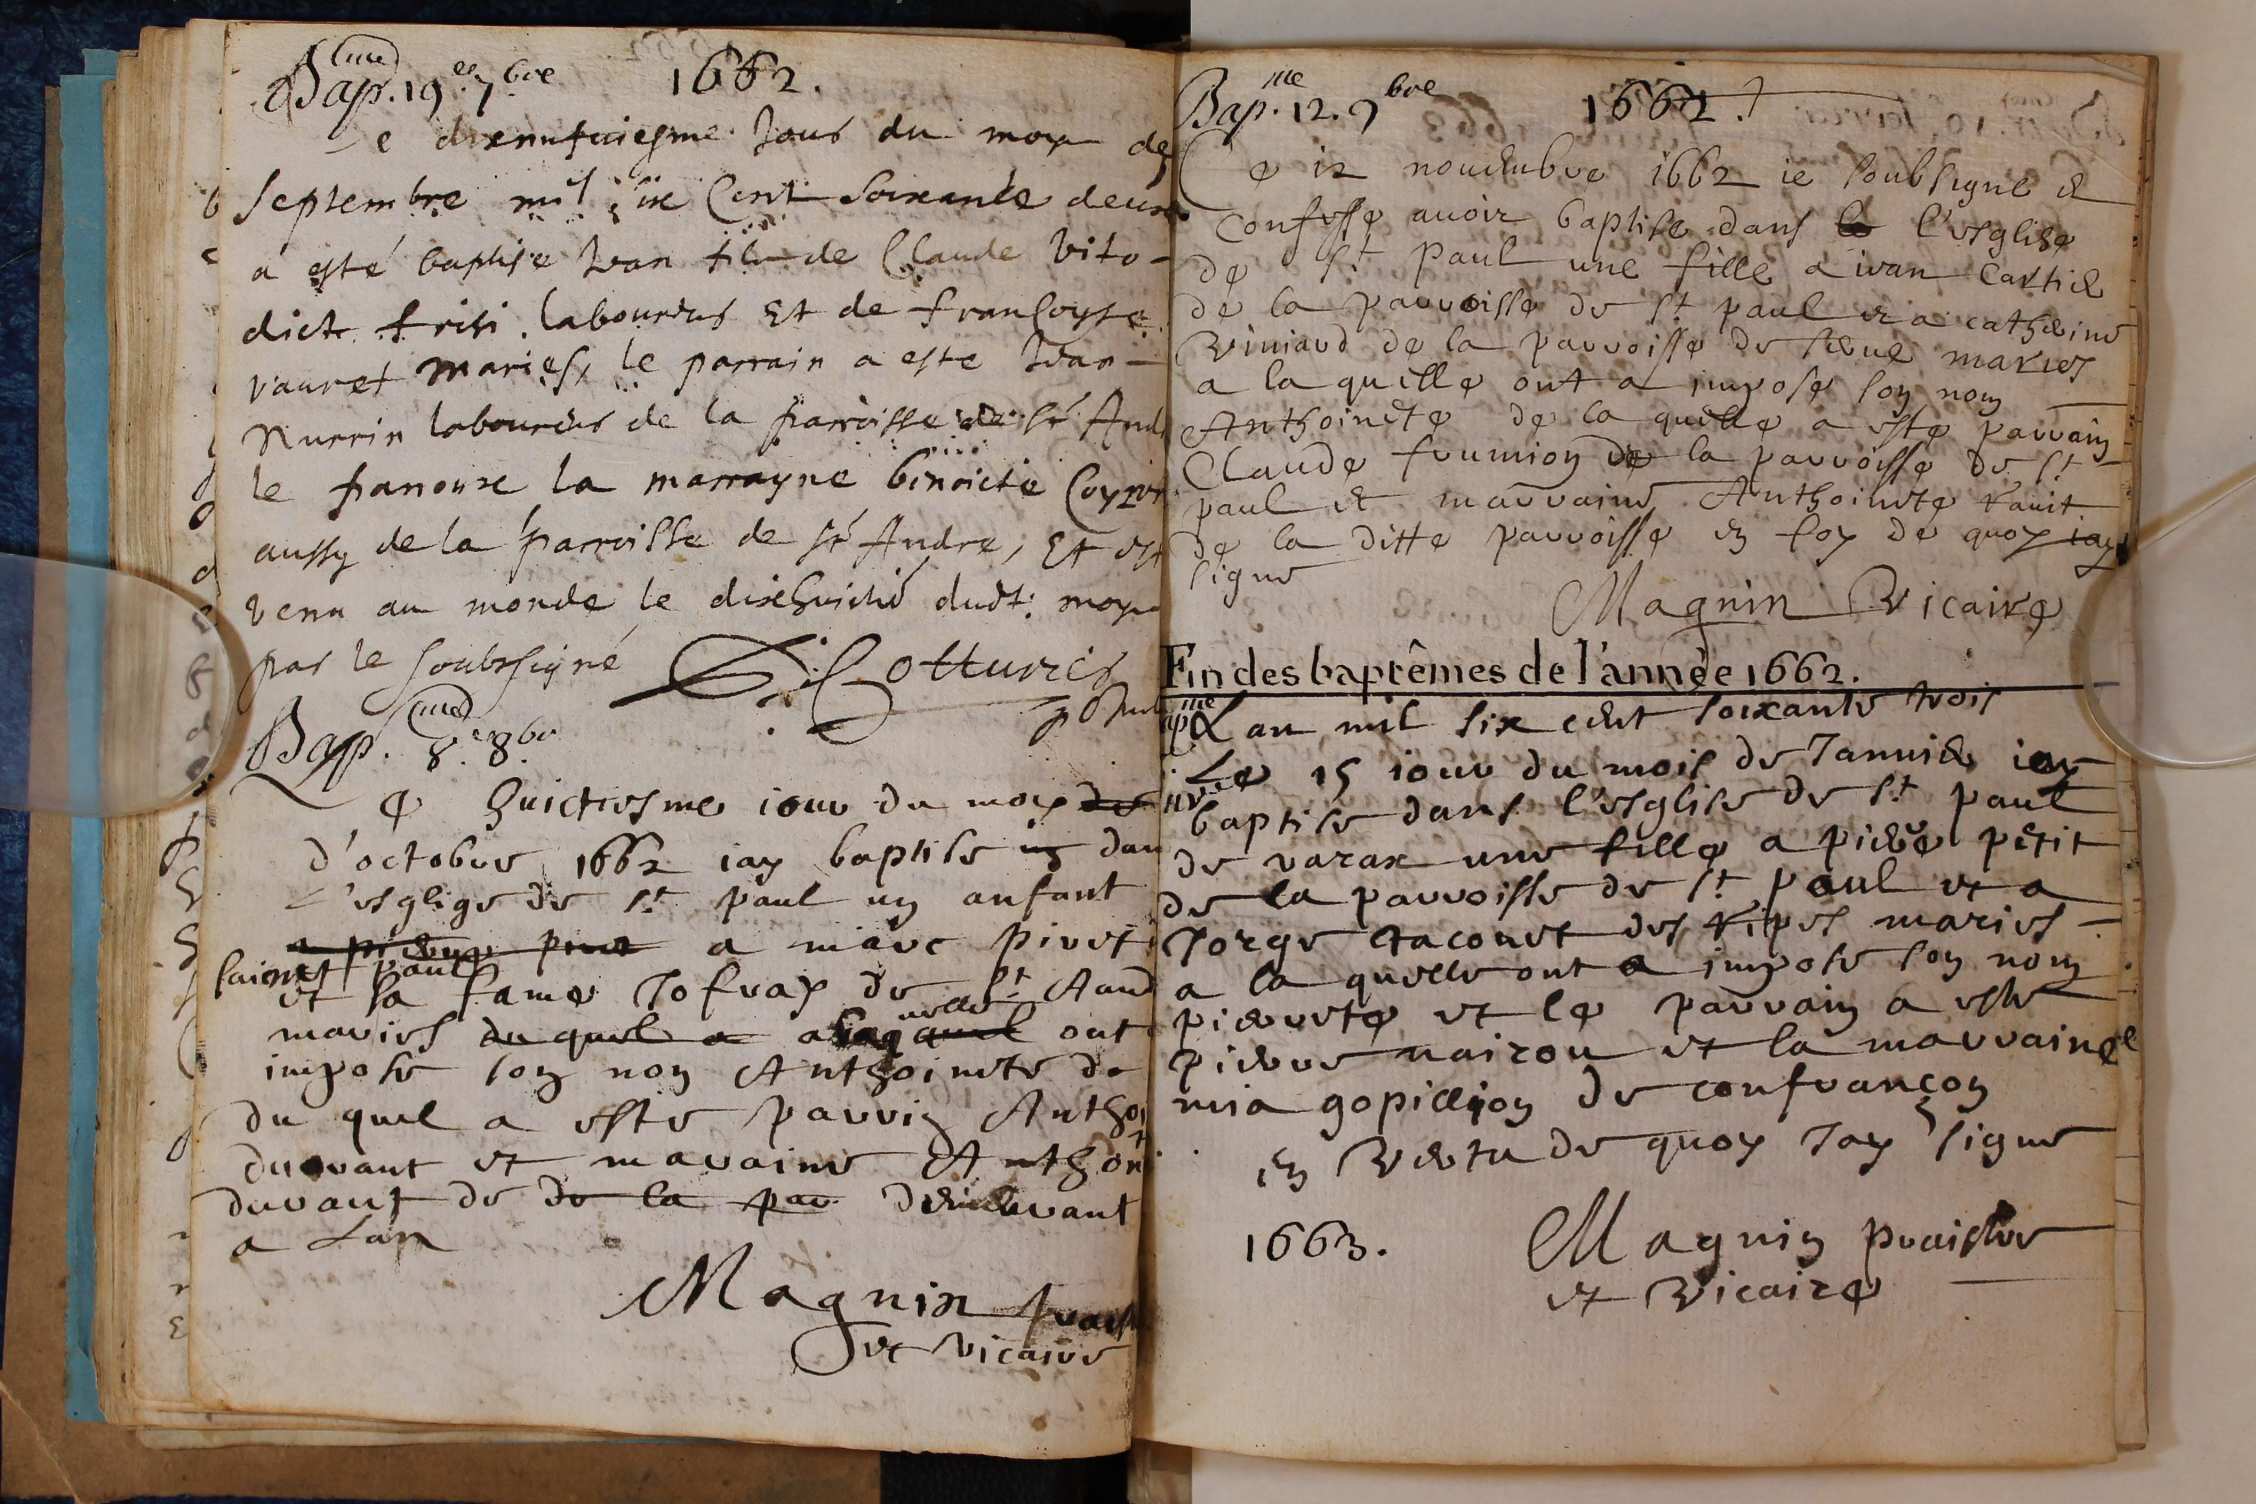 Bap.me 19.e 7.bre 1662.
Le dixnufuiesme Jour du moys de
septembre mil six Cent soixante deux
a esté baptise Jean filz de Claude Vito-
dict frisi laboureur Et de francoyse
vauret maries, le parrain a este Jean
Nurrin laboureur de la parroisse de St And
le panoux la marrayne benoicte Coyzi
aussy de la parroisse de St Andre, Et est
venu au monde le dixhuictie dudt. moys
par le soubssigné
Bap.me 8.e 8.bre
Le huictiesme iour du moys de
d'octobre 1662 iay baptise un dan
l'esglise de St paul un anfant
a pierre petit a marc pivet
saient paul
et sa fame Jofray de St And
maries du quel a a laquelle ont
impose son non Anthoinete de
du quel a este parrin Antho
durant et maraine Anthoni
durant de de la par
a Lan
Magnin praist
et vicaire
Bap.me 12. 9bre 1662.
Ce 12 nouembre 1662 ie soubsigne et
confesse auoir baptise dans le l'esglise
de St Paul une fille a iean Cartier
de la parroisse de St paul et a catherine
Viniard de la parroisse de maries
a la quelle ont a impose son nom
Anthoinete de la quelle a este parrain
Claude frumion de la parroisse de St
paul et marraine Anthoinete
de la ditte parroisse en foy de quoy iay
signe
Magnin Vicaire
Fin des baptêmes de l'année 1662.
Lan mil six cent soixante trois
Le 15 iour du mois de Januier iay
baptise dans l'esglise de St paul
de varax une fille a pierre petit
de la parroisse de St paul et a
Jorge tacouet des ripes maries
a la quelle ont a impose son nom
pierrete et le parrain a este
pierre nairou et la marraine
mia gopillion de confrançon
en Vertu de quoy Jay signe
1663. Magnin praistre
et Vicaire